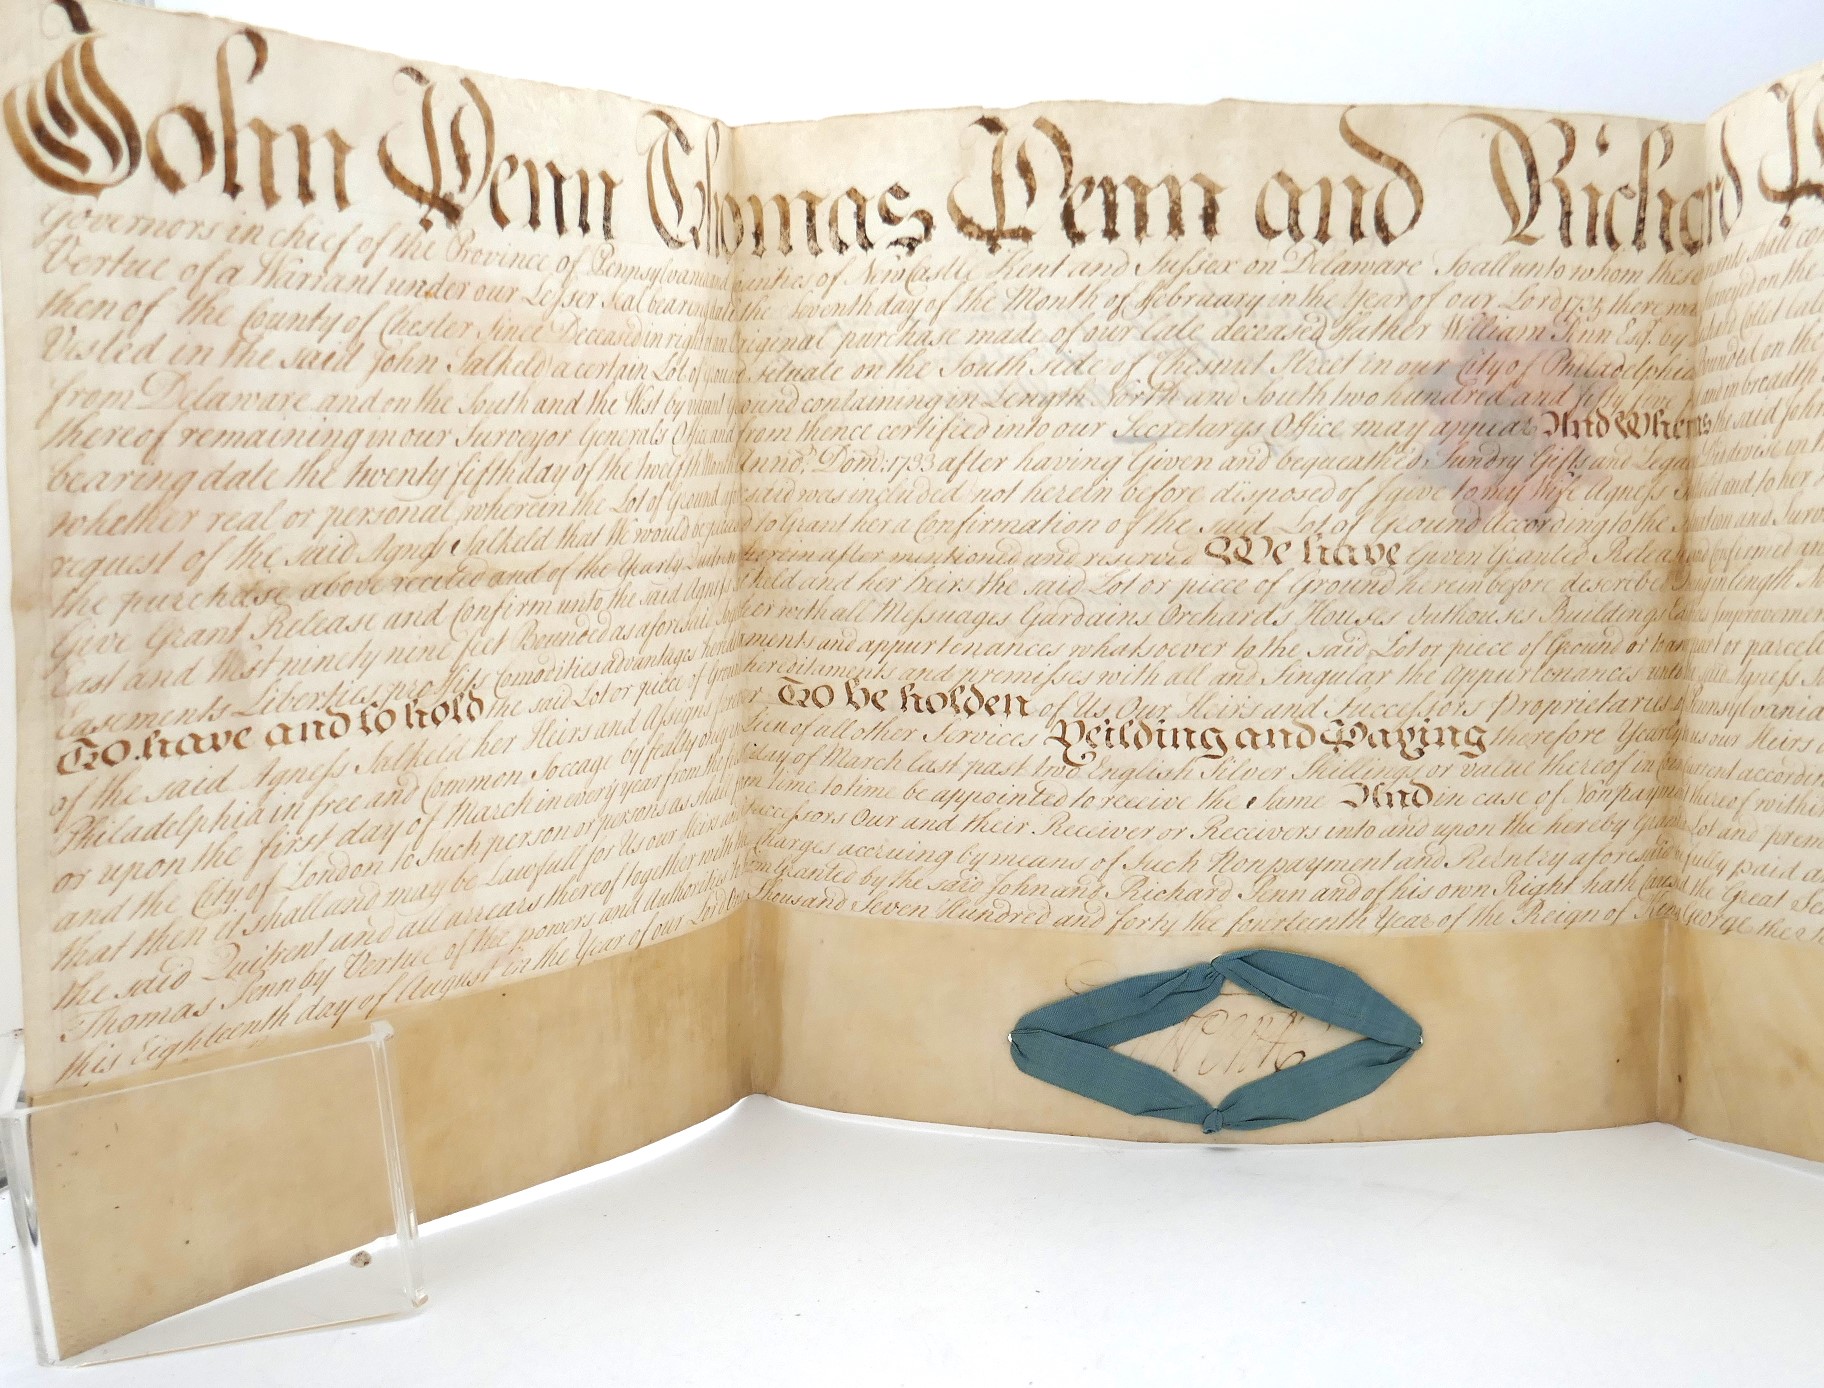 John Penn Thomas Penn and Richard P
Governors in chief of the Province of Pennsylvania and Counties of NewCastle Kent and Sussex on Delaware To all unto whom these shall co
Vertue of a Warrant under our Lesser Seal bearing date the seventh day of the Month of February in the Year of our Lord 1735 there was Surveyed on the
then of the County of Chester Since Deceased in right original purchase made of our late deceased Father William Penn Esqr. by
Vested in the said John Salkeld a certain Lot of Ground situate on the South side of Chesnut Street in our City of Philadelphia Bounded on the
from Delaware and on the South and the West by vacant Ground containing in Length North and South two hundred and fifty five and in breadth
thereof remaining in our Surveyor Generals Office and from thence certified into our Secretarys Office may appear And Whereas the said John
bearing date the twenty fifth day of the twelfth Month Anno. Dom: 1733 after having Given and bequeathed Sundry Gifts and
whether real or personal wherein the Lot of Ground aforesaid was included not herein before disposed of I give to my Wife Agness and to her
request of the said Agness Salkeld that We would be pleased to Grant her a Confirmation of the said Lot of Ground According to the and
the purchase above recited and of the Yearly Quitrent herein after mentioned and reserved We have Given Granted Released and Confirmed an
Give Grant Release and Confirm unto the said Agness Salkeld and her Heirs the said Lot or piece of Ground herein before described in length
East and West ninety nine feet Bounded as aforesaid Together with all Messuages Gardains Orchards Houses Outhouses Buildings Improvemen
Easements Liberties profits Comodities advantages hereditaments and appurtenances whatsoever to the said Lot or piece of Ground or to any part or parcel
To have and to hold the said Lot or piece of Ground hereditaments and premisses with all and Singular the Appurtenances unto the said Agness
of the said Agness Salkeld her Heirs and Assigns forever To be holden of Us Our Heirs and Successors Proprietaries of Pennsylvania
Philadelphia in free and Common Soccage by fealty only in Lieu of all other Services Yeilding and Paying therefore Yearly our Heirs
or upon the first day of March in every year from the first day of March last past two English Silver Shillings or value thereof in accordin
and the City of London to Such person or persons as shall from time to time be appointed to receive the Same And in case of Nonpayment thereof within
that then it shall and may be Lawfull for Us our Heirs and Successors Our and their Receiver or Receivers into and upon the hereby Granted Lot and prem
the said Quitrent and all arrears thereof together with the Charges accruing by means of Such Nonpayment and Reentry aforesaid fully paid a
Thomas Penn by Vertue of the powers and Authorities to him Granted by the said John and Richard Penn and of his own Right hath the Great Se
this Eighteenth day of August in the Year of our Lord One Thousand Seven Hundred and forty the fourteenth Year of the Reign of King George the